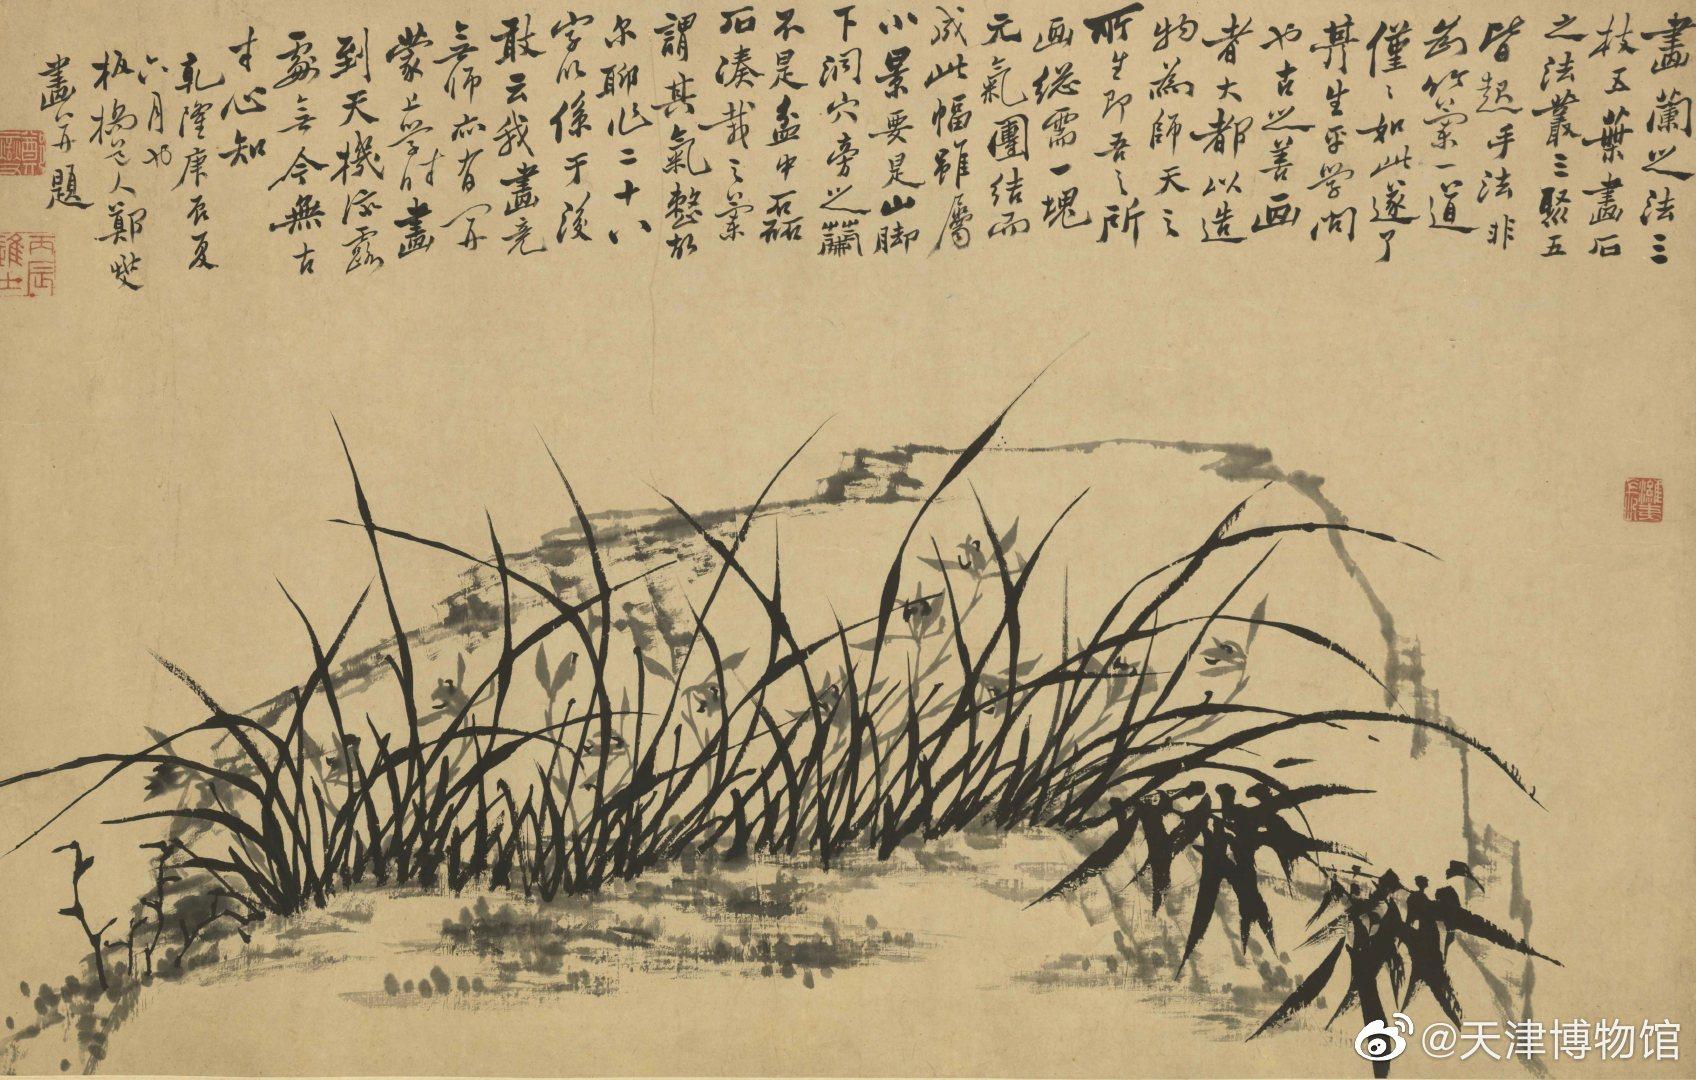 畫蘭之法三
枝五葉畫石
之法叢三聚五
皆起手法非
為竹蘭一道
僅〻如此遂了
其生平學問
也古之善画
者大都以造
物為師天之
所生即吾之所
画總需一塊
元氣團結而
成此幅雖屬
小景要是山脚
下洞穴旁之蘭
不是盆中磊
石湊栽之蘭
謂其氣整故
尔聊作二十八
字以係于後
敢云我畫竟
無師亦有開
蒙上學時畫
到天機流露
處無今無古
寸心知
乾隆庚辰夏
六月也
板橋道人鄭燮
畫并題
丙辰進士
@天津博物馆